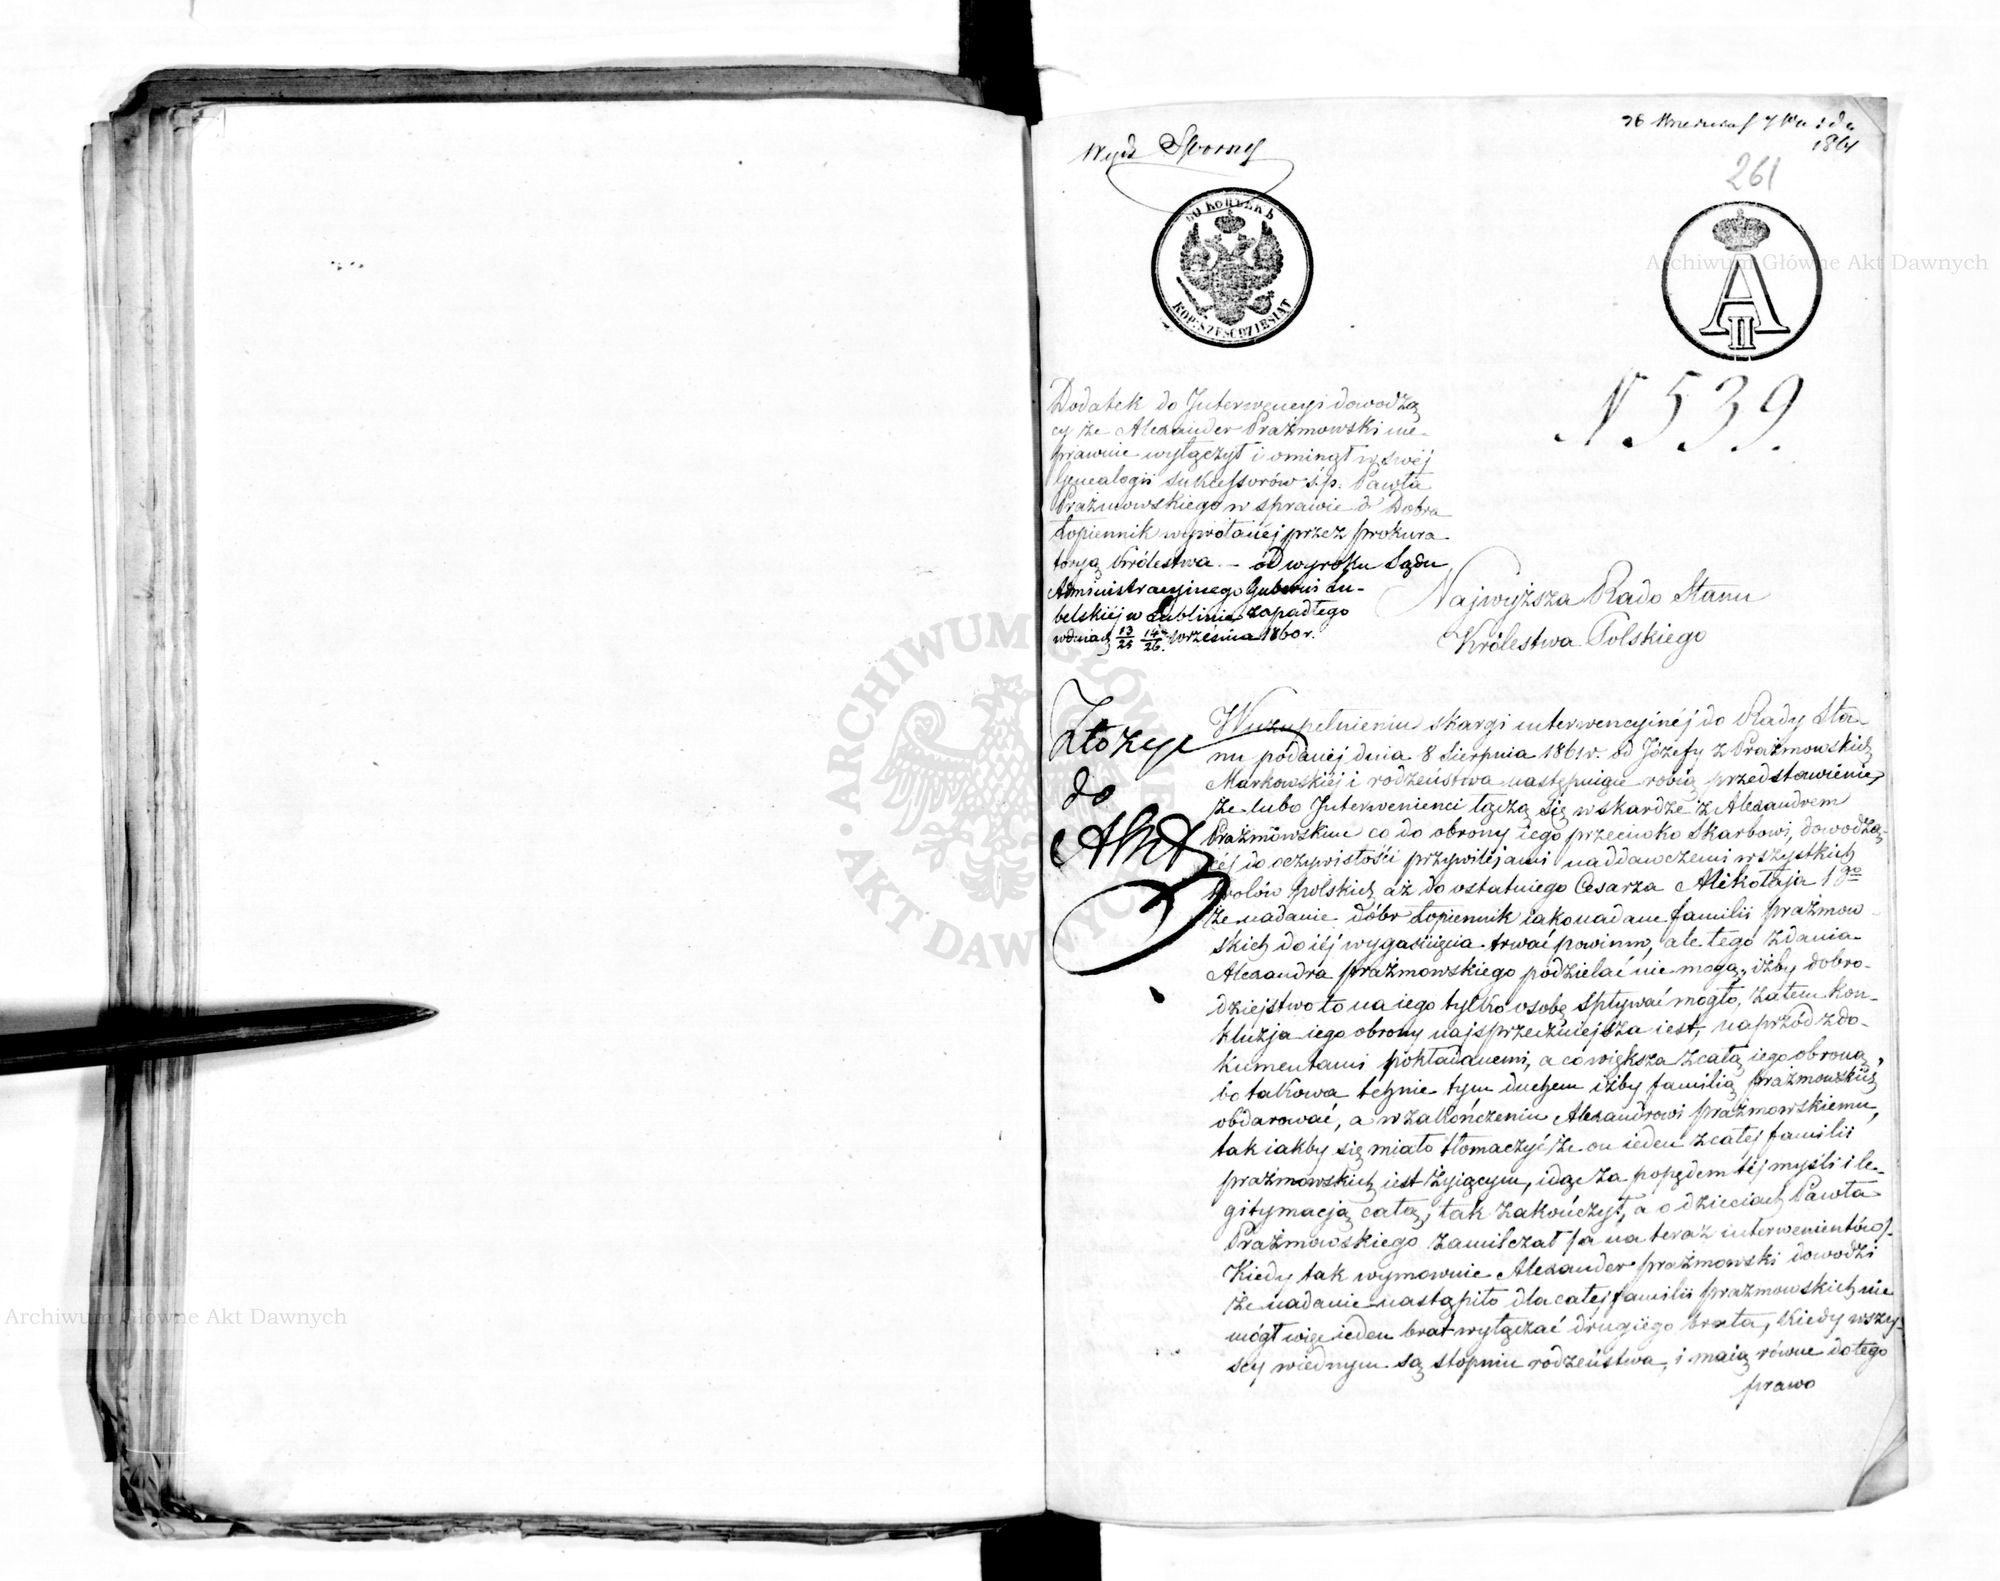 Wydz Sporny
1861
261
60 КОПѢЕКЪ
KOP: SZEŚĆDZIESIĄT
A II
N 539.
Dodatek do Interwencyi dowodzą
cy że Alexander Prażmowski nie-
prawnie wyłączył i ominął w swéj
Genealogii sukcessorów ś.p. Pawła
Prażmowskiego w sprawie o Dobra
Łopiennik wywołanéj przez prokura
toryą Królestwa. – od wyroku Sądu
Administracyjnego Gubernii Lu-
belskiéj w Lublinie zapadłego
w dniach 13/25 14/26 Września 1860 r.
Najwyższa Rado Stanu
Królestwa Polskiego
Złożyć
do
Akt
W uzupełnieniu skargi interwencyinéj do Rady Sta-
nu podanéj dnia 8 Sierpnia 1861 r. od Józefy z Prażmowskich
Markowskiéj i rodzeństwa następnie robią przedstawienie,
że lubo Interwenienci łączą się w skardze z Alexandrem
Prażmowskim co do obrony iego przeciwko Skarbowi, dowodzą-
céj do oczywistości przywilejami naddawczemi wszystkich
Królów polskich aż do ostatniego Cesarza Mikołaja 1go
że nadanie dóbr Łopiennik iako nadane familii prażmow-
skich do iéj wygaśnięcia trwać powinno, ale tego zdania
Alexandra prażmowskiego podzielać nie mogą, iżby dobro-
dziejstwo to na iego tylko osobę spływać mogło, zatem kon-
kluzja iego obrony najsprzeczniejsza iest, naprzód z do-
kumentami pokładanemi, a co większa z całą iego obroną,
bo takowa tchnie tym duchem iżby familią prażmowskich
obdarować, a w zakończeniu Alexandrowi prażmowskiemu,
tak iakby się miało tłomaczyć że on ieden z całej familii
prażmowskich iest żyiącym, idąc za popędem téj myśli i le-
gitymacją całą, tak zakończył, a o dzieciach Pawła
Prażmowskiego zamilczał /a na teraz interwenientów/.
Kiedy tak wymownie Alexander prażmowski dowodzi
że nadanie nastąpiło dla całéj familii prażmowskich, nie
mógł więc ieden brat wyłączać drugiego brata, kiedy wszy-
scy w iednym są stopniu rodzeństwa, i maią równe do tego
prawo
Archiwum Główne Akt Dawnych
Archiwum Główne Akt Dawnych
ARCHIWUM GŁÓWNE AKT DAWNYCH